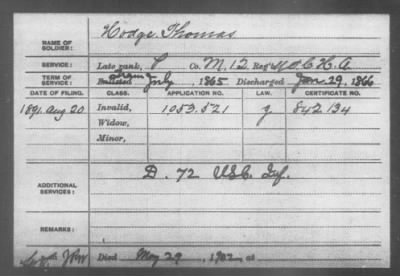 NAME OF SOLDIER: Hodge Thomas
SERVICE: Late rank, P Co. M, 12 Reg't U.S.C.H.A
TERM OF SERVICE: Enlisted July, 1865 Discharged Jan. 29, 1866
DATE OF FILING. CLASS. APPLICATION NO. LAW. CERTIFICATE NO.
1891. Aug 20 Invalid, 1053.521 g 842134
Widow,
Minor,
ADDITIONAL SERVICES: D. 72 U.S.C. Inf.
REMARKS:
Died May 29, 1902, at